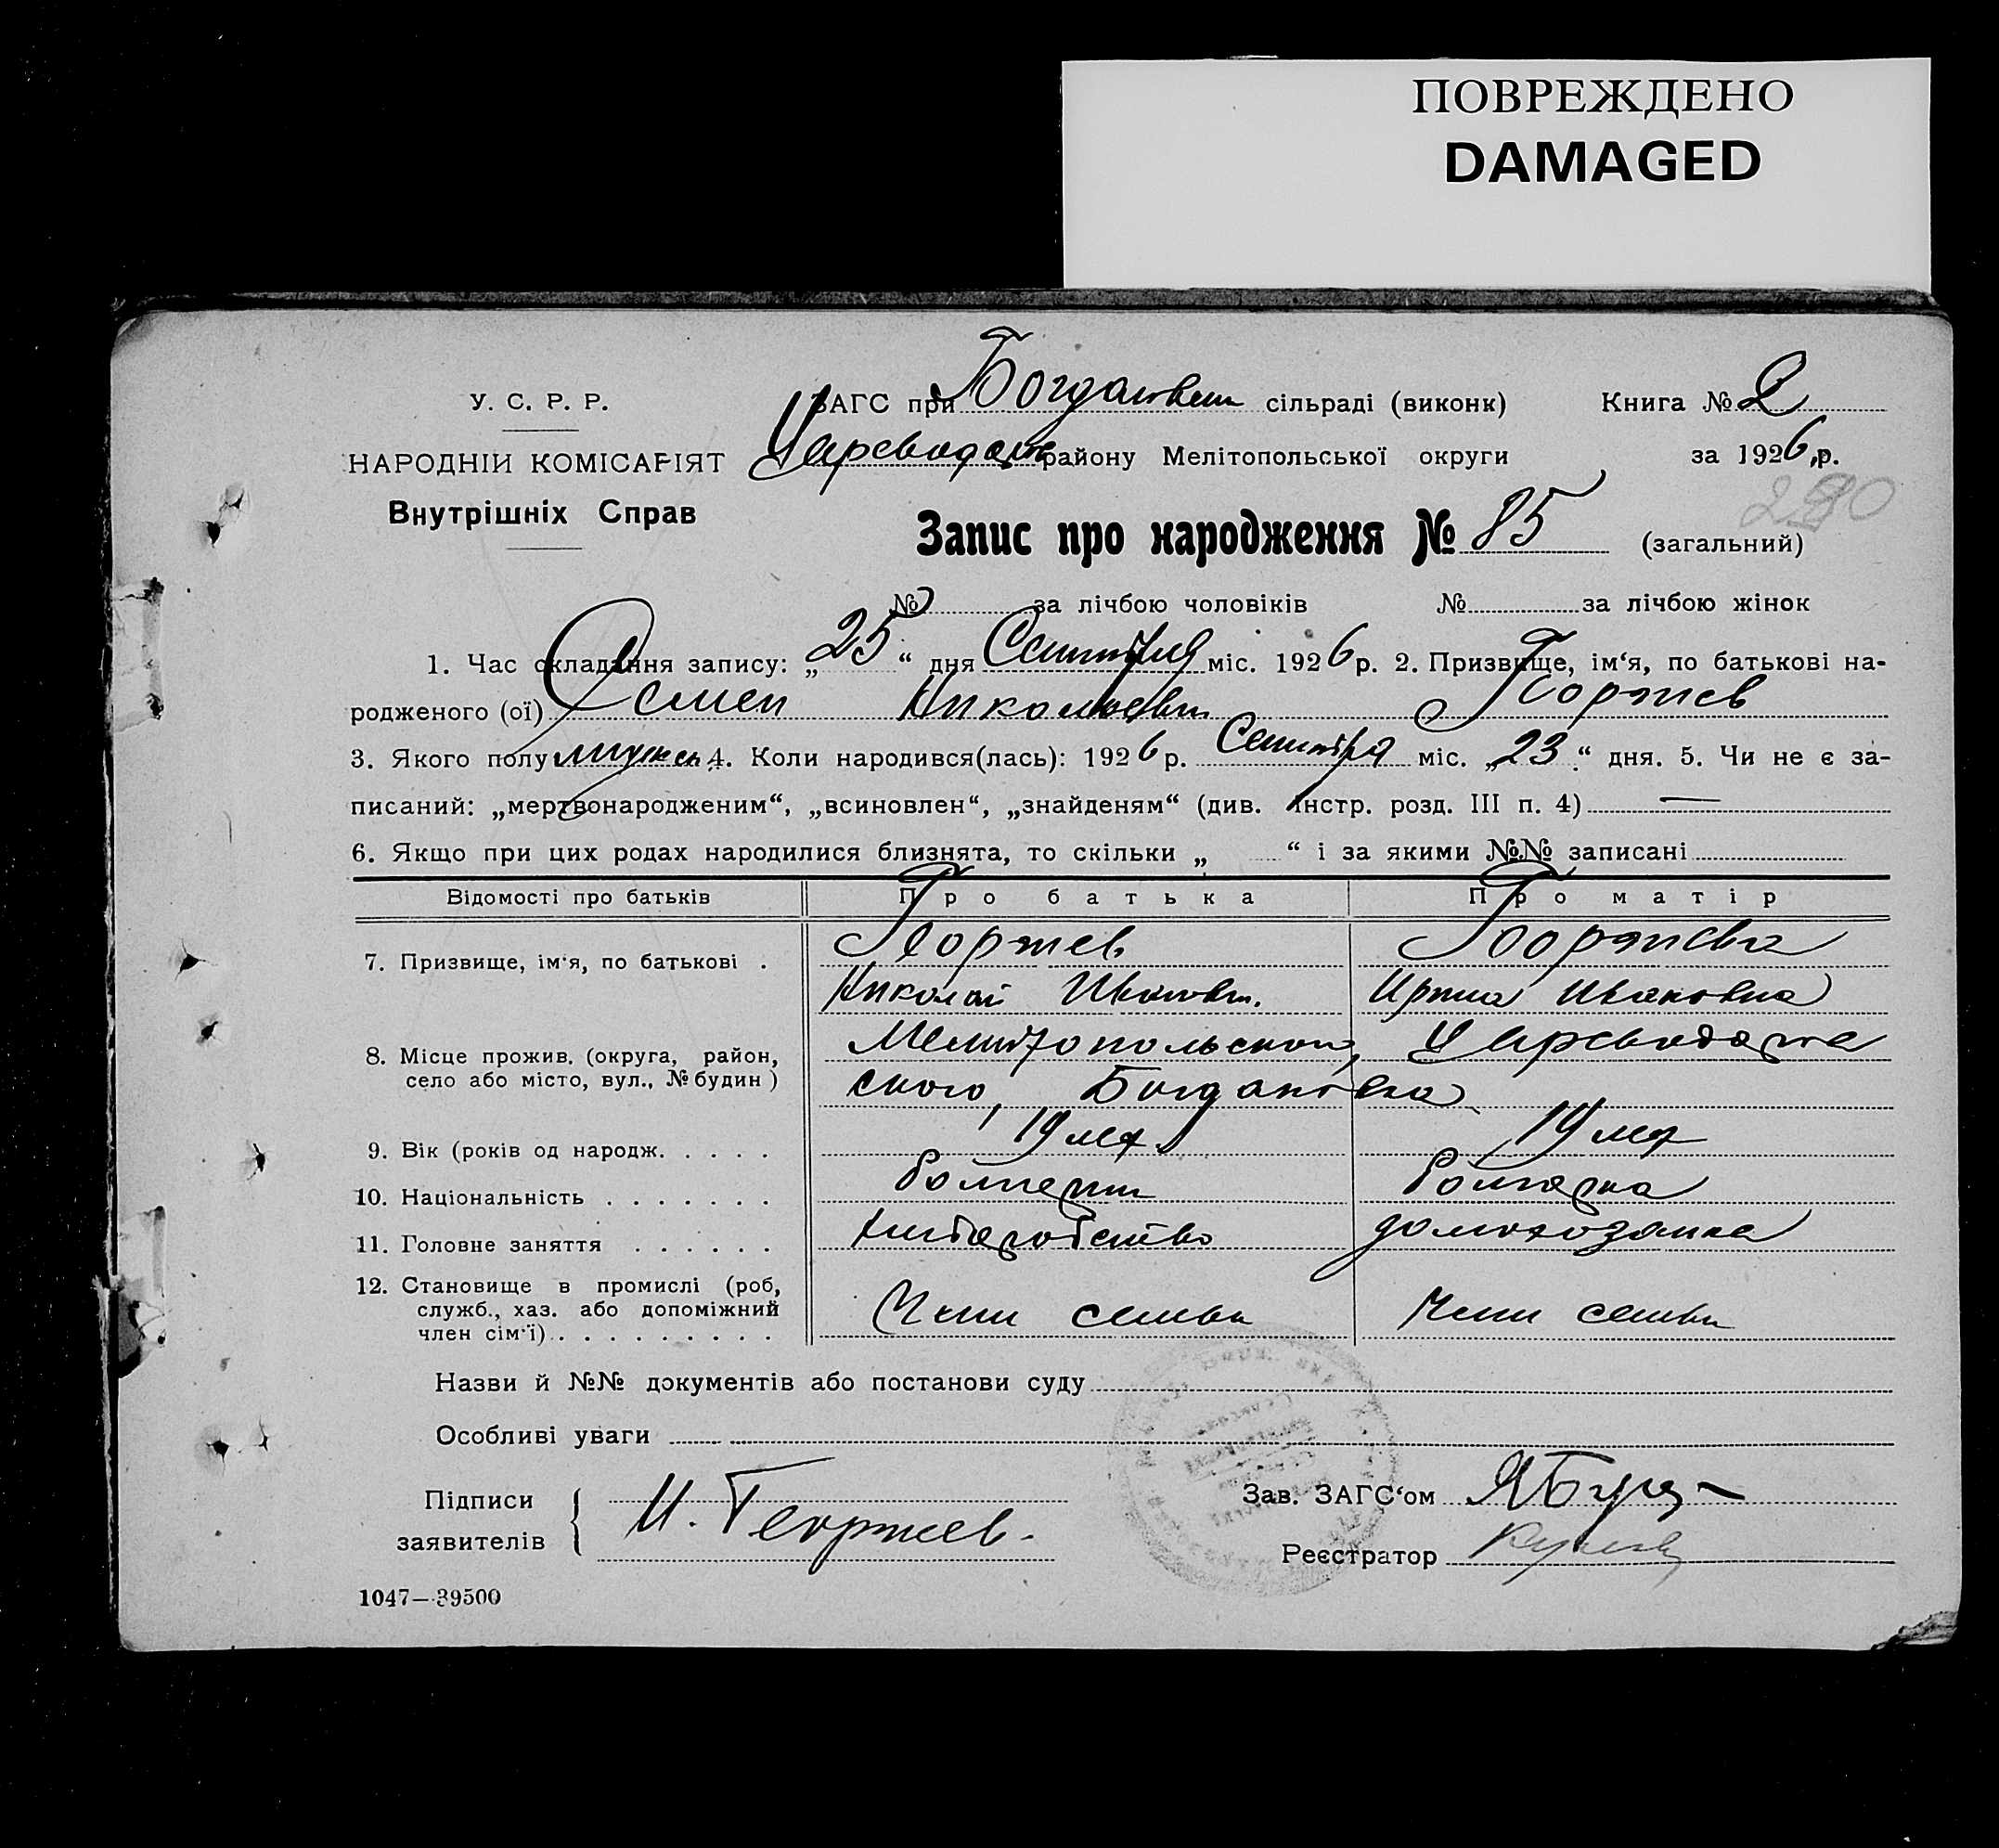 ПОВРЕЖДЕНО
DAMAGED
У. С. Р. Р.
ЗАГС при Богдановск сільраді (виконк) Книга № 2
НАРОДНІЙ КОМІСАРІЯТ
Цареводар району Мелітопольської округи за 1926 р.
Внутрішніх Справ
280
Запис про народження № 85 (загальний)
№ за лічбою чоловіків № за лічбою жінок
1. Час складання запису: „25“ дня Сентября міс. 1926 р. 2. Призвище, ім‘я, по батькові на-
родженого (ої) Семен Николаевич Георгиев
3. Якого полу мужск 4. Коли народився(лась): 1926 р. Сентября міс. „23“ дня. 5. Чи не є за-
писаний: „мертвонародженим“, „всиновлен“, „знайденям“ (див. Інстр. розд. III п. 4) —
6. Якщо при цих родах народилися близнята, то скільки „ “ і за якими №№ записані
Відомості про батьків Про батька Про матір
7. Призвище, ім‘я, по батькові . Георгиев Георгиева
Николай Иванович. Ирина Ивановна
8. Місце прожив. (округа, район, село або місто, вул., № будин) Мелитопольского, Цареводар
ского, Богдановка
9. Вік (років од народж. . . . . 19 лет 19 лет
10. Національність . . . . . . . болгарин болгарка
11. Головне заняття . . . . . . хлебаробство домохозяйка
12. Становище в промислі (роб, служб., хаз. або допоміжний член сім‘ї) . . . . . . . . . Член семьи Член семьи
Назви й №№ документів або постанови суду
Особливі уваги
Підписи заявителів Н. Георгиев.
Зав. ЗАГС‘ом
Реєстратор
1047—39500